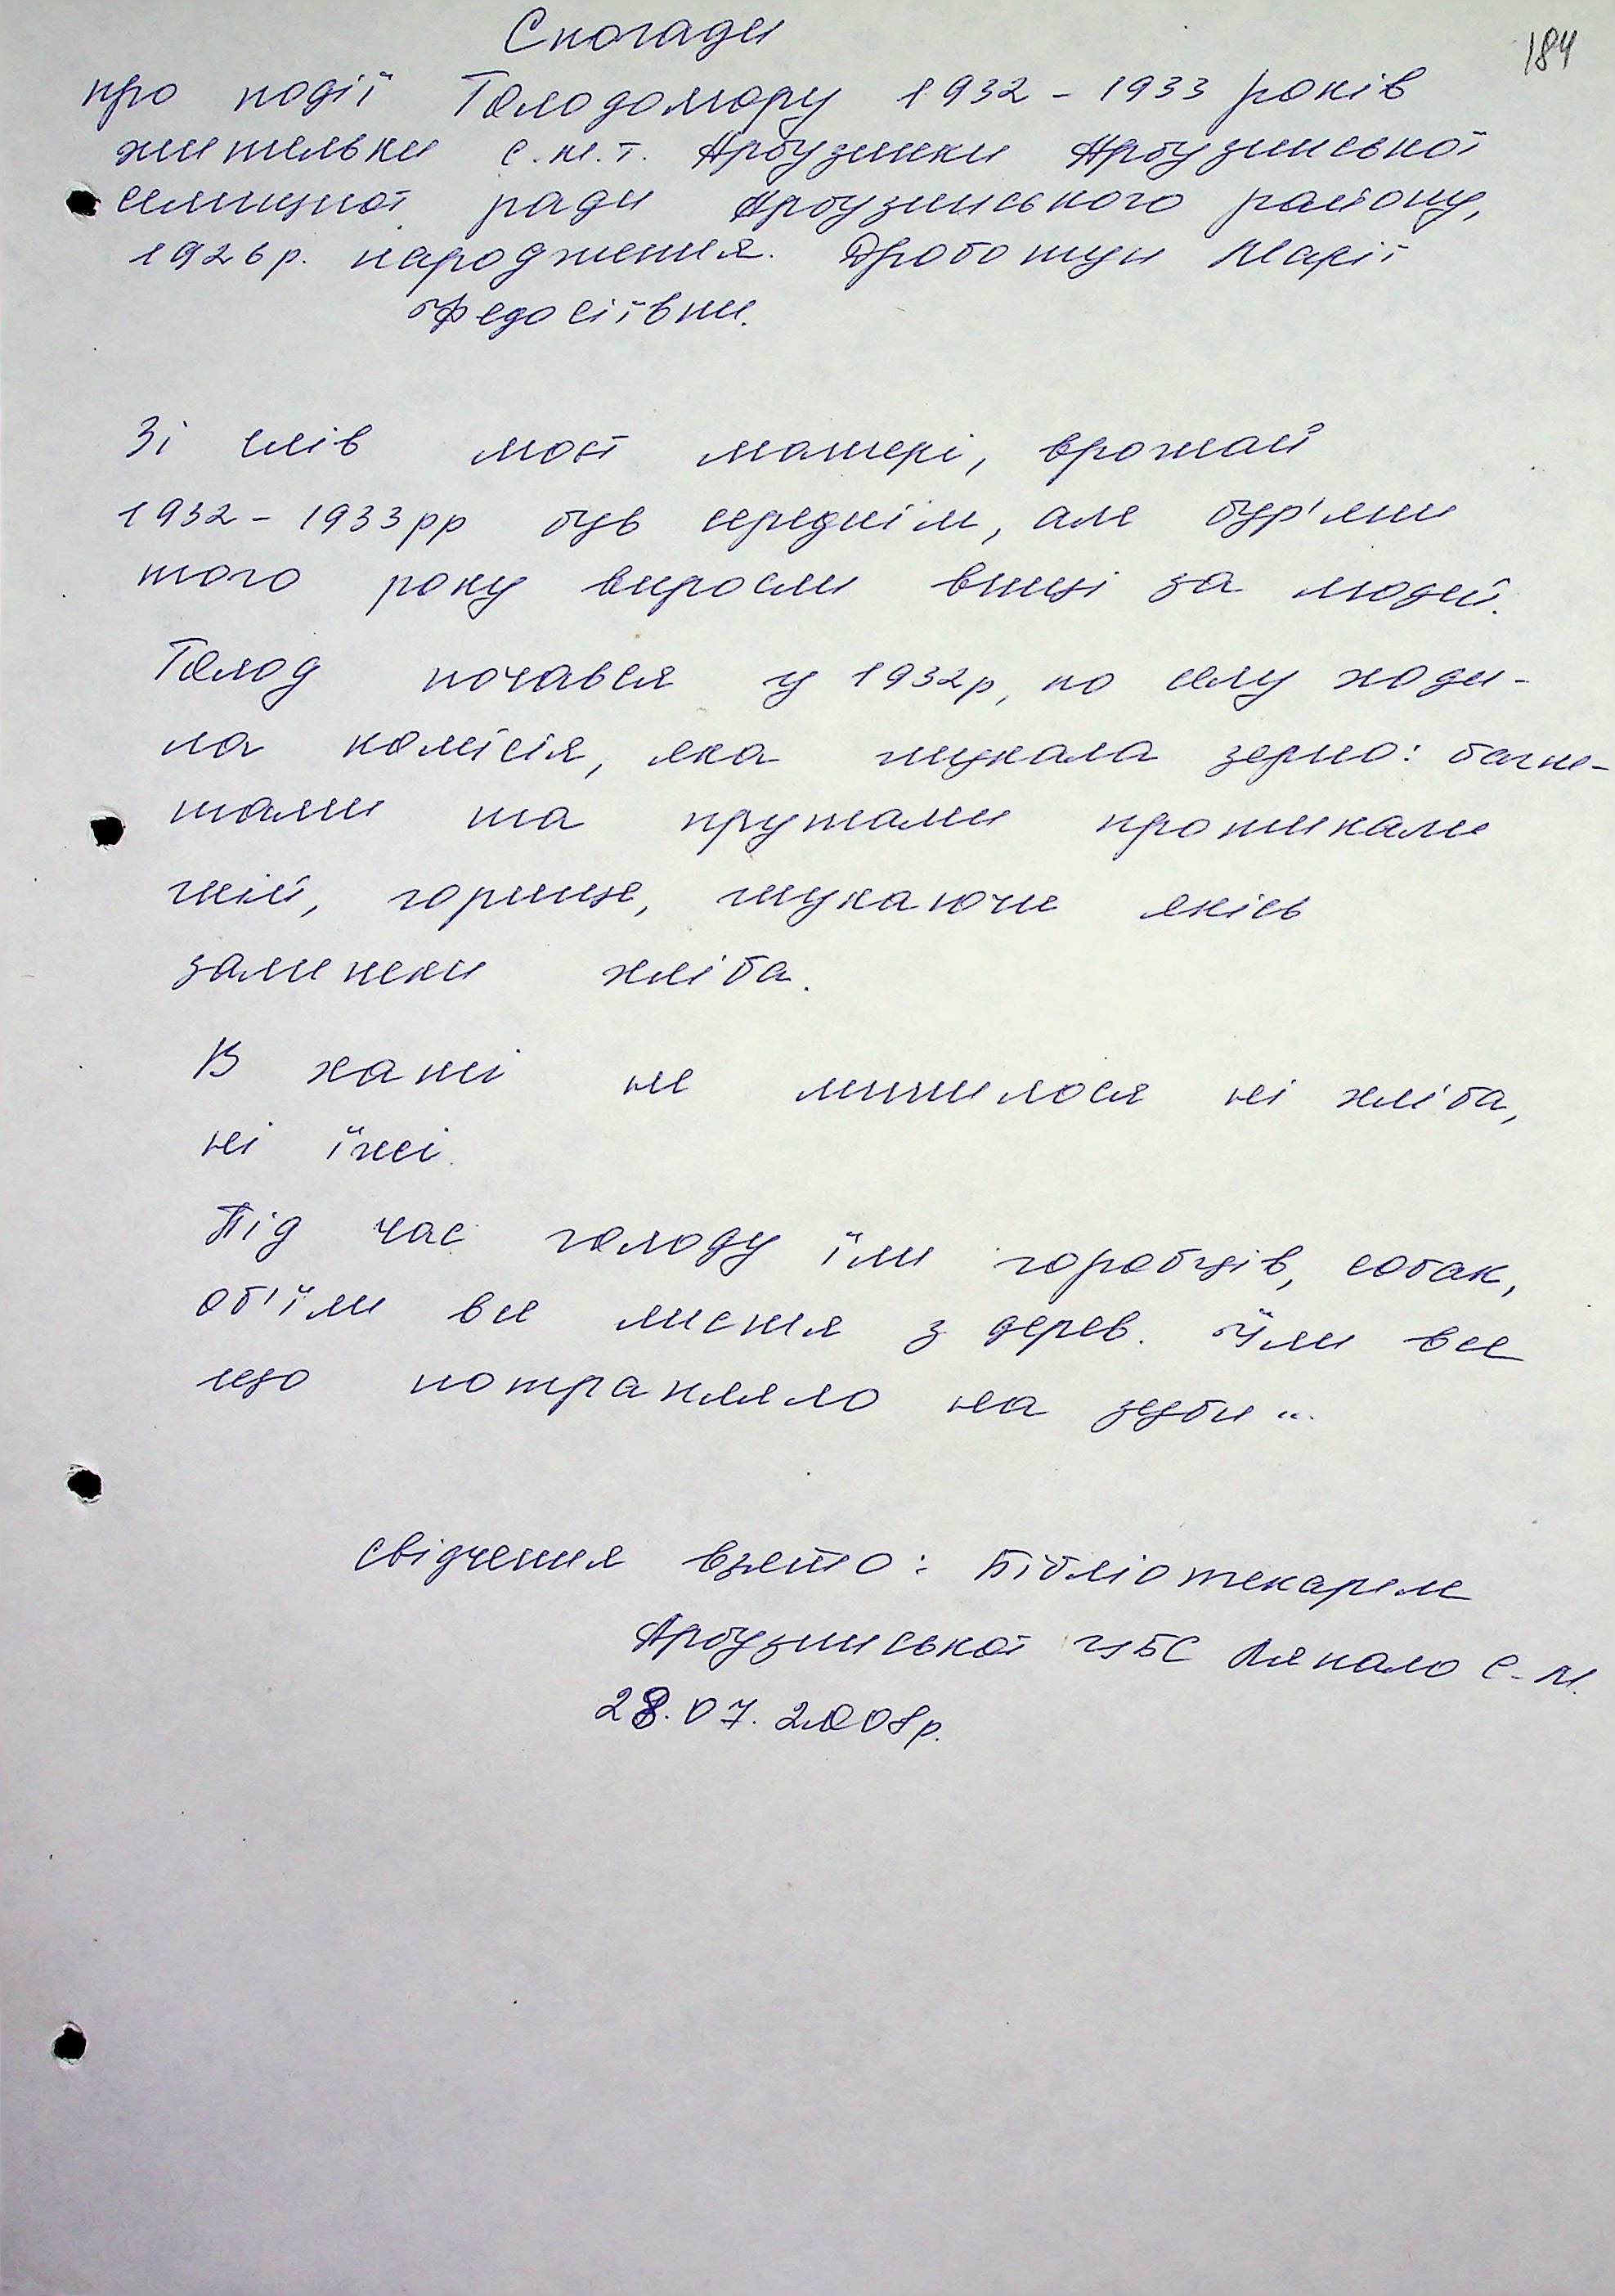 184
Спогади
про події Голодомору 1932 - 1933 років
жительки с.м.т. Арбузинки Арбузинської
селищної ради Арбузинського району,
1926 р. народження. Дроботун Марії
Федосіївни.
Зі слів моєї матері, врожай
1932 - 1933 рр був середнім, але бур'яни
того року виросли вищі за людей.
Голод почався у 1932 р, по селу ходи-
ла комісія, яка шукала зерно: багне-
тами та прутами протикали
гній, горище, шукаючи якісь
залишки хліба.
В хаті не лишилося ні хліба,
ні їжі.
Під час голоду їли горобців, собак,
об'їли все листя з дерев. Їли все
що потрапляло на зуби...
Свідчення взято: Бібліотекарем
Арбузинської ЦБС Ляпало С. М.
28.07.2008 р.